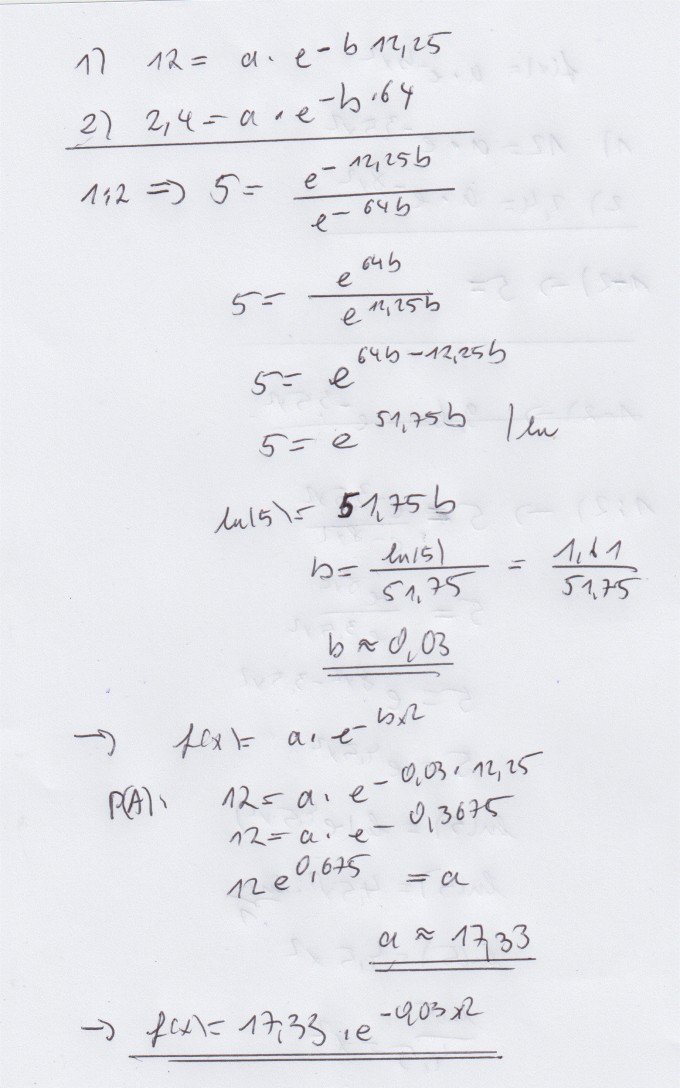 1) 12 = a · e^{-b · 12,25}
2) 2,4 = a · e^{-b · 64}
1:2 => 5 = \frac{e^{-12,25b}}{e^{-64b}}
5 = \frac{e^{64b}}{e^{12,25b}}
5 = e^{64b-12,25b}
5 = e^{51,75b} | ln
ln(5) = 51,75b
b = \frac{ln(5)}{51,75} = \frac{1,61}{51,75}
b ≈ 0,03
→ f(x) = a · e^{-bx2}
P(A): 12 = a · e^{-0,03 · 12,25}
12 = a · e^{-0,3675}
12 e^{0,675} = a
a ≈ 17,33
→ f(x) = 17,33 · e^{-0,03x2}